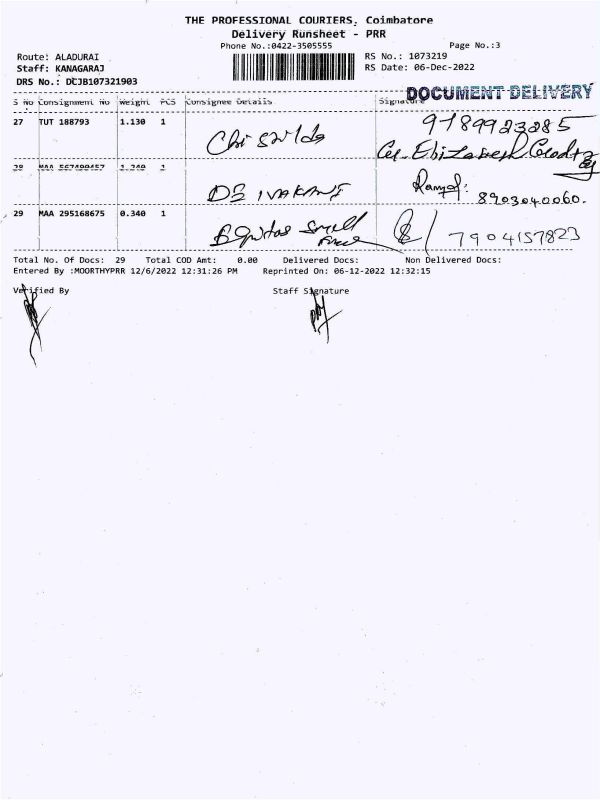 THE PROFESSIONAL COURIERS, Coimbatore
Delivery Runsheet - PRR
Phone No.:0422-3505555 Page No.:3
Route: ALADURAI RS No.: 1073219
Staff: KANAGARAJ RS Date: 06-Dec-2022
DRS No.: DCJB107321903
DOCUMENT DELIVERY
S No Consignment No Weight PCS Consignee Details Signature
27 TUT 188793 1.130 1 9789923285
28 MAA 1
DEIVAKANI 8903040060.
29 MAA 295168675 0.340 1 Equitas Small 7904157823
Total No. Of Docs: 29 Total COD Amt: 0.00 Delivered Docs: Non Delivered Docs:
Entered By :MOORTHYPRR 12/6/2022 12:31:26 PM Reprinted On: 06-12-2022 12:32:15
Verified By Staff Signature